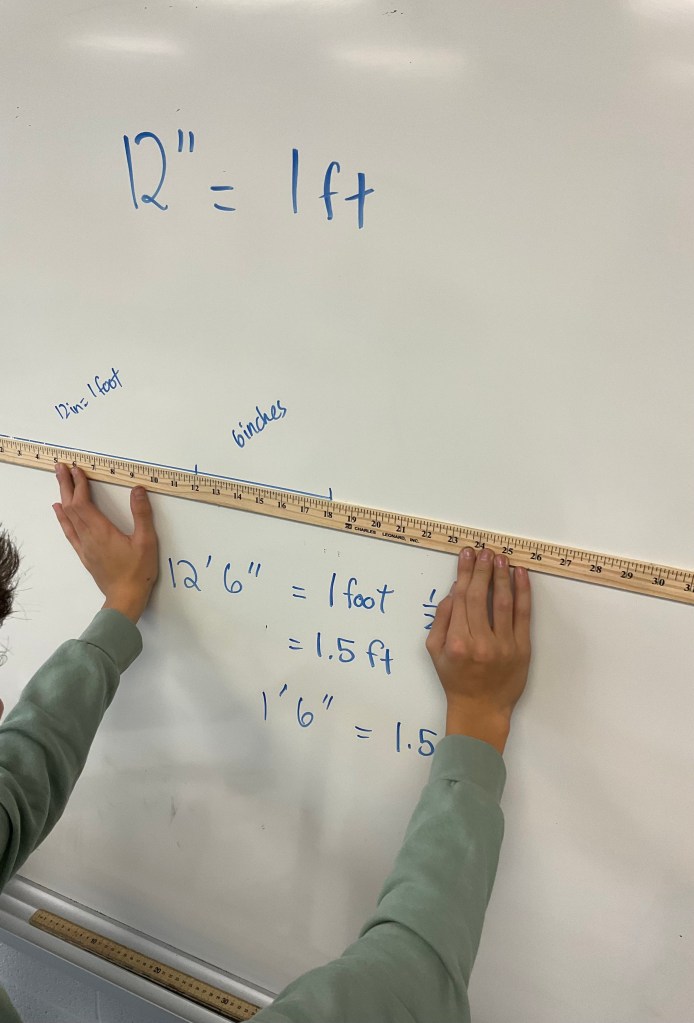 12" = 1 ft
12in = 1 foot
6 inches
3 4 5 6 7 8 9 10 11 12 13 14 15 16 17 18 19 20 21 22 23 24 25 26 27 28 29 30
CHARLES LEONARD, INC.
12' 6" = 1 foot
= 1.5 ft
1' 6" = 1.5
10 20 30